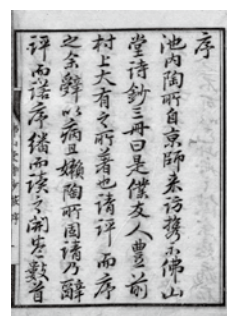 序
池内陶所自京師来訪携示佛山
堂诗鈔三冊曰是僕友人豊前
村上大有之所著也请評而序
之余辞以病且嬾陶所固请乃醉
評而诺序繙而读之開巻數首